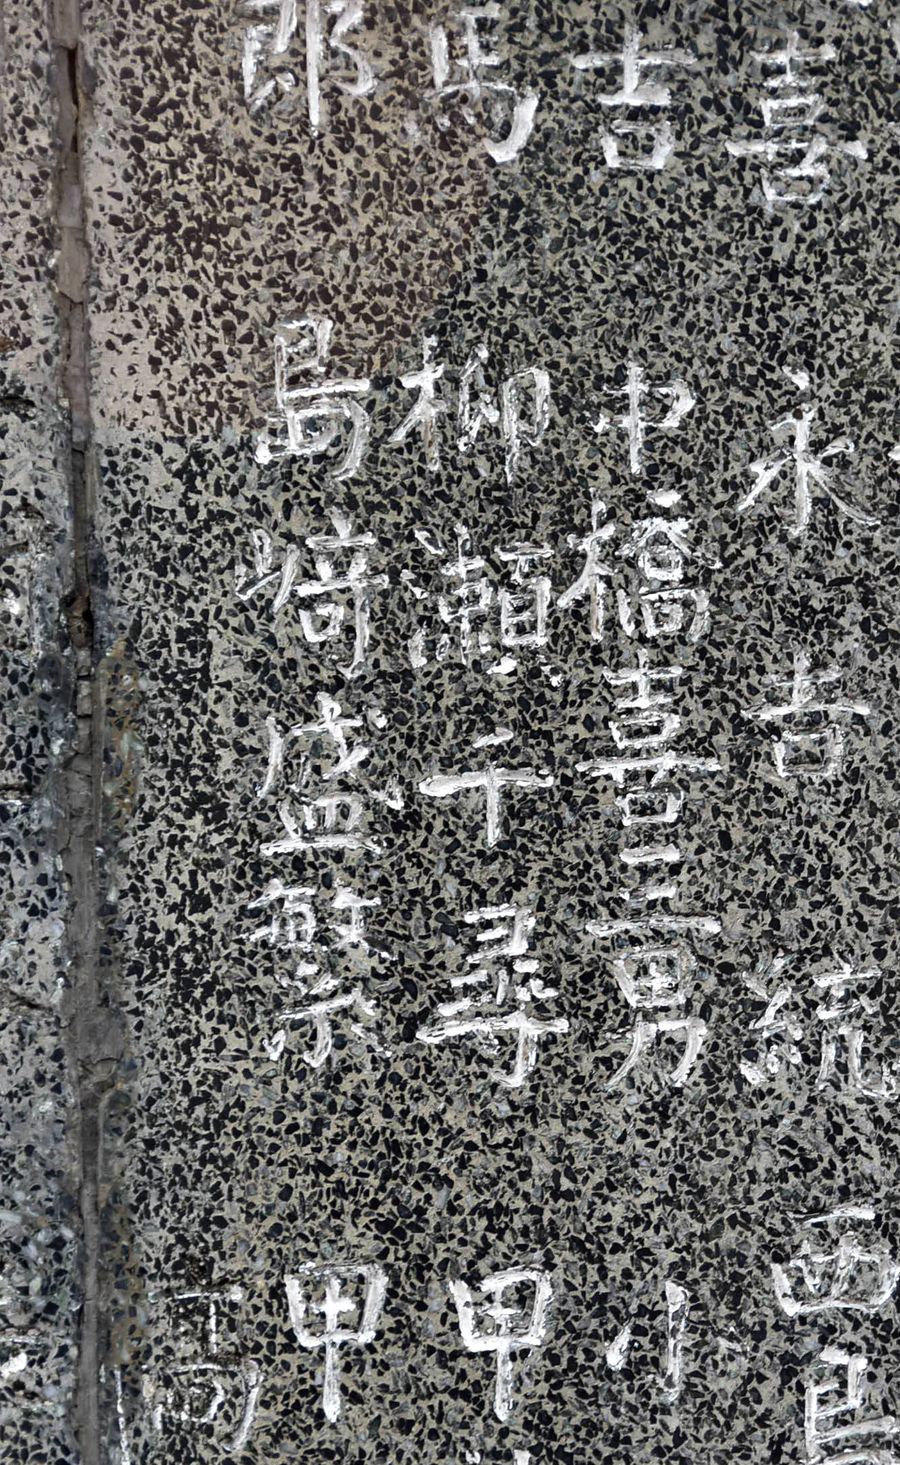 喜 永吉統 西
吉 中橋喜三男 小
馬 柳瀬千尋 甲
郎 島﨑盛繁 甲
司